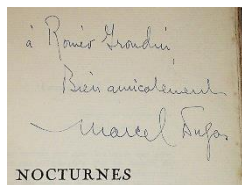 à Roméo Grondin
Bien amicalement
Marcel Dugas
NOCTURNES